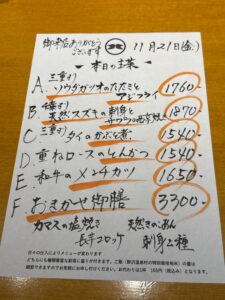 御来店ありがとうございます
11月21日(金)
本日の主菜
A. 三重す) ソウダガツオのたたきと アジフライ 1760-
B. 4重す) 天然スズキの刺身と サワラの西京焼 1870
C. 三重す) タイのかぶと煮 1540-
D 重ねロースのとんかつ 1540-
E 和牛のメンチカツ 1650-
F おまかせ御膳 3300-
カマスの塩焼き 天然きのこあん
長芋コロッケ 刺身2種
日々の仕入によりメニューが変わります